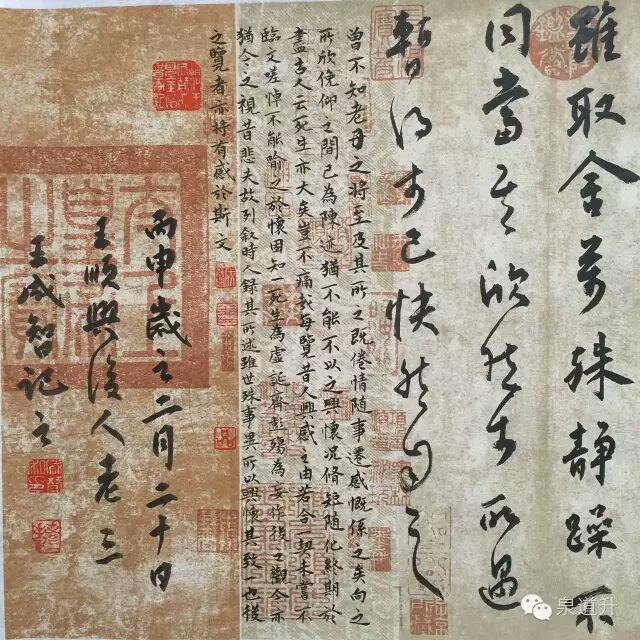 雖取舍萬殊靜躁不
同當其欣於所遇
暫得於己快然自足
曾不知老之將至及其所之既倦情隨事遷感慨係之矣向之
所欣俛仰之間已為陳迹猶不能不以之興懷況脩短隨化終期於
盡古人云死生亦大矣豈不痛哉每覽昔人興感之由若合一契未嘗不
臨文嗟悼不能喻之於懷固知一死生為虛誕齊彭殤為妄作後之觀今亦
猶今之視昔悲夫故列敘時人錄其所述雖世殊事異所以興懷其致一也後
之覽者亦將有感於斯文
丙申歲之二月二十日
王順興後人老三
王成智記之
泉道升